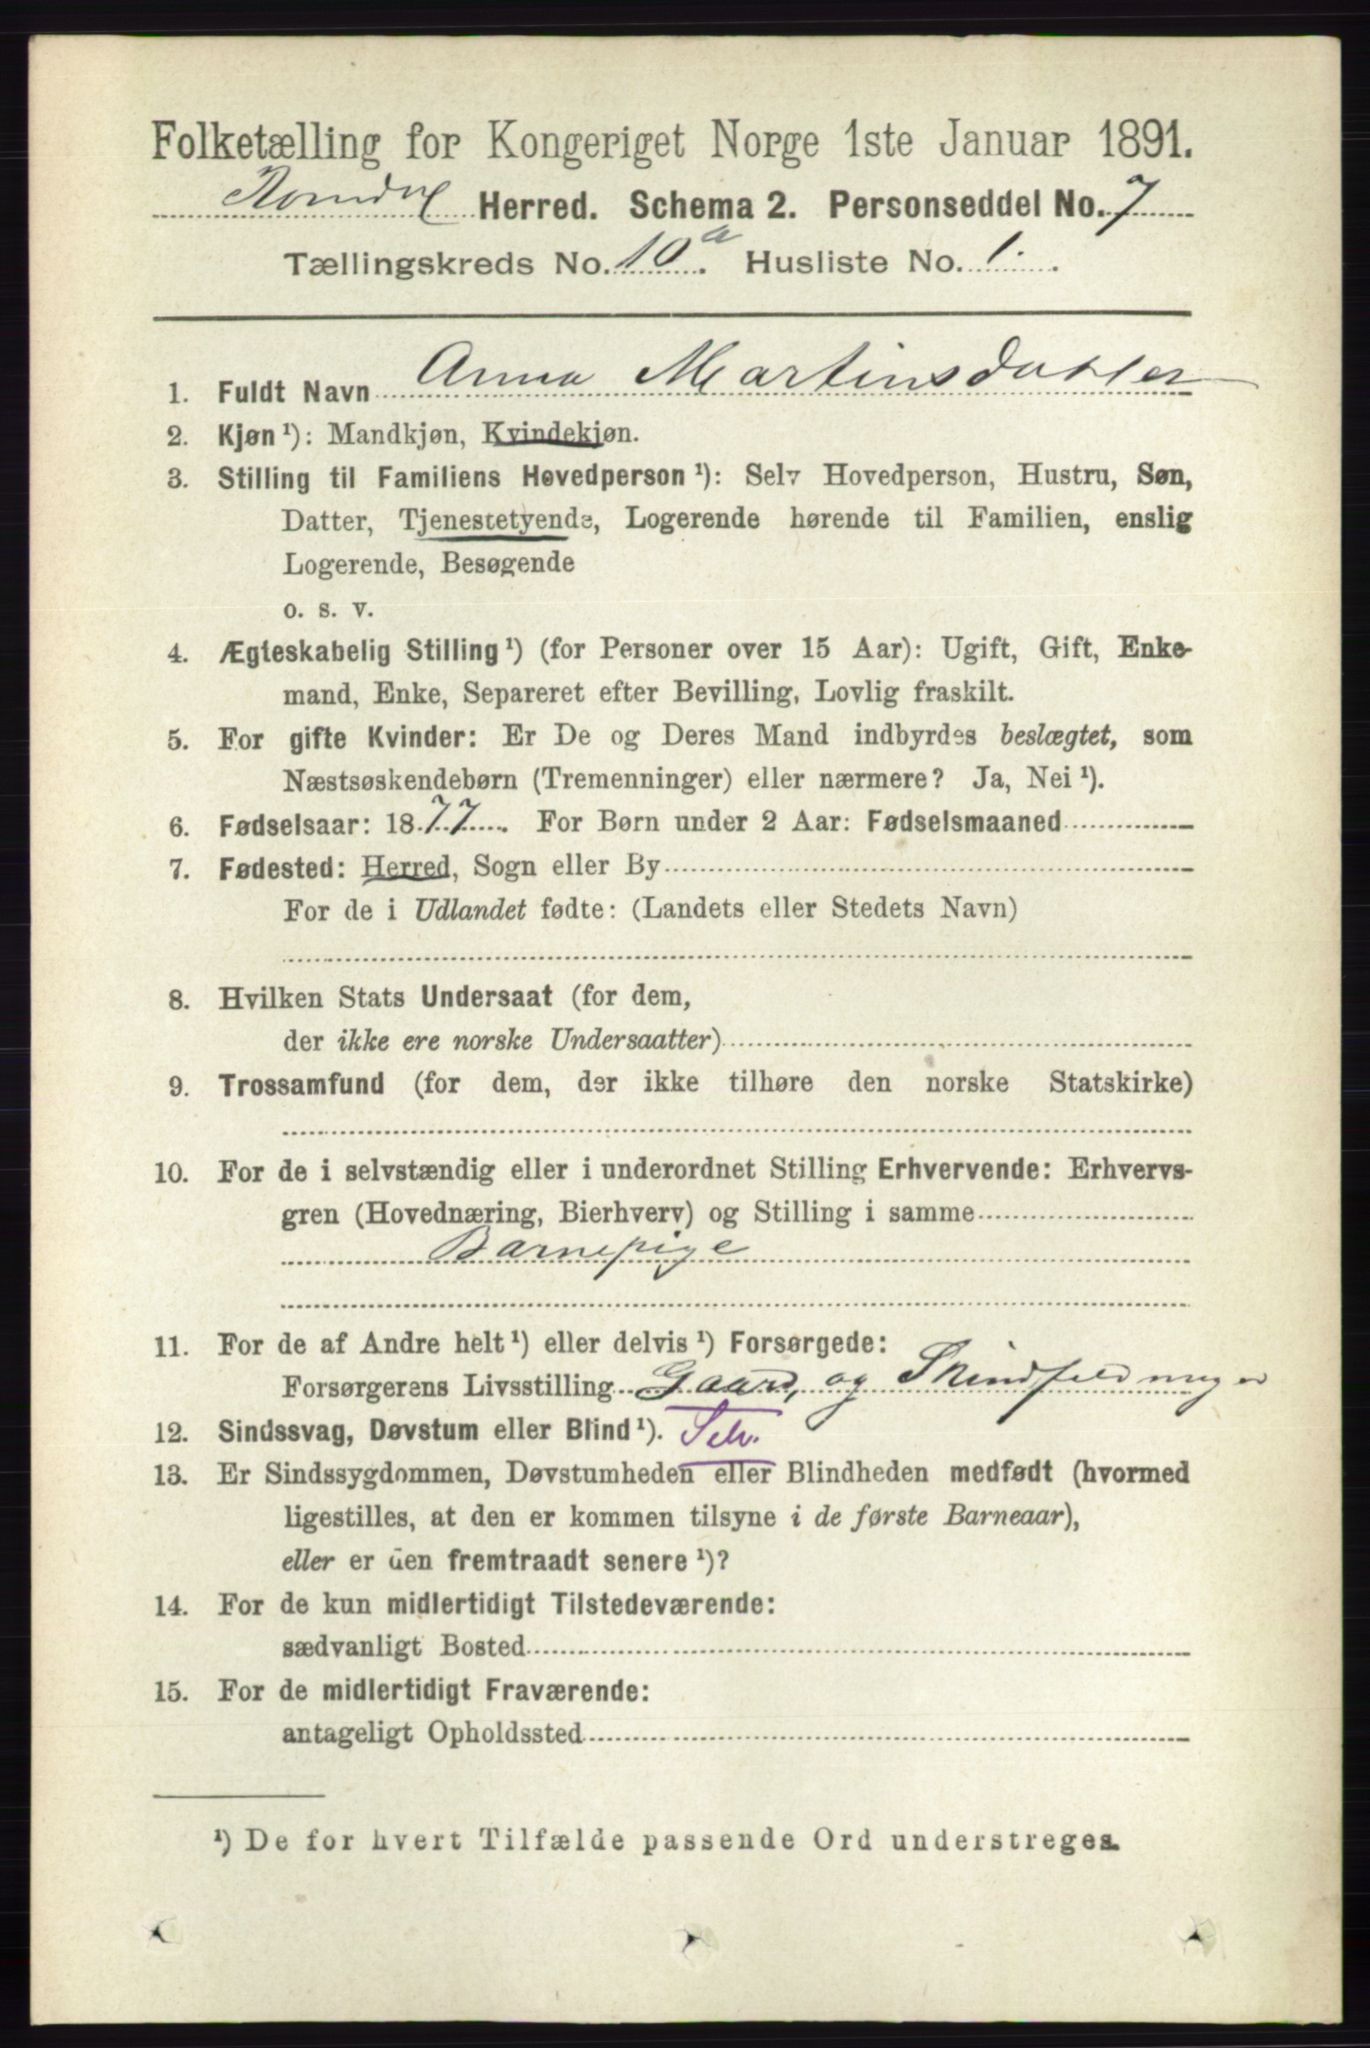 Folketælling for Kongeriget Norge 1ste Januar 1891.
Romdal Herred. Schema 2. Personseddel No. 7
Tællingskreds No. 10a. Husliste No. 1.
1. Fuldt Navn Anna Martinsdatter
2. Kjøn¹): Mandkjøn, Kvindekjøn.
3. Stilling til Familiens Hovedperson¹): Selv Hovedperson, Hustru, Søn,
Datter, Tjenestetyende, Logerende hørende til Familien, enslig
Logerende, Besøgende
o. s. v.
4. Ægteskabelig Stilling¹) (for Personer over 15 Aar): Ugift, Gift, Enke-
mand, Enke, Separeret efter Bevilling, Lovlig fraskilt.
5. For gifte Kvinder: Er De og Deres Mand indbyrdes beslægtet, som
Næstsøskendebørn (Tremenninger) eller nærmere? Ja, Nei¹).
6. Fødselsaar: 1877. For Børn under 2 Aar: Fødselsmaaned
7. Fødested: Herred, Sogn eller By
For de i Udlandet fødte: (Landets eller Stedets Navn)
8. Hvilken Stats Undersaat (for dem,
der ikke ere norske Undersaatter)
9. Trossamfund (for dem, der ikke tilhøre den norske Statskirke)
10. For de i selvstændig eller i underordnet Stilling Erhvervende: Erhvervs-
gren (Hovednæring, Bierhverv) og Stilling i samme
Barnepige
11. For de af Andre helt¹) eller delvis¹) Forsørgede:
Forsørgerens Livsstilling Gaard, og
12. Sindssvag, Døvstum eller Blind¹). Selv.
13. Er Sindssygdommen, Døvstumheden eller Blindheden medfødt (hvormed
ligestilles, at den er kommen tilsyne i de første Barneaar),
eller er den fremtraadt senere¹)?
14. For de kun midlertidigt Tilstedeværende:
sædvanligt Bosted
15. For de midlertidigt Fraværende:
antageligt Opholdssted
¹) De for hvert Tilfælde passende Ord understreges.